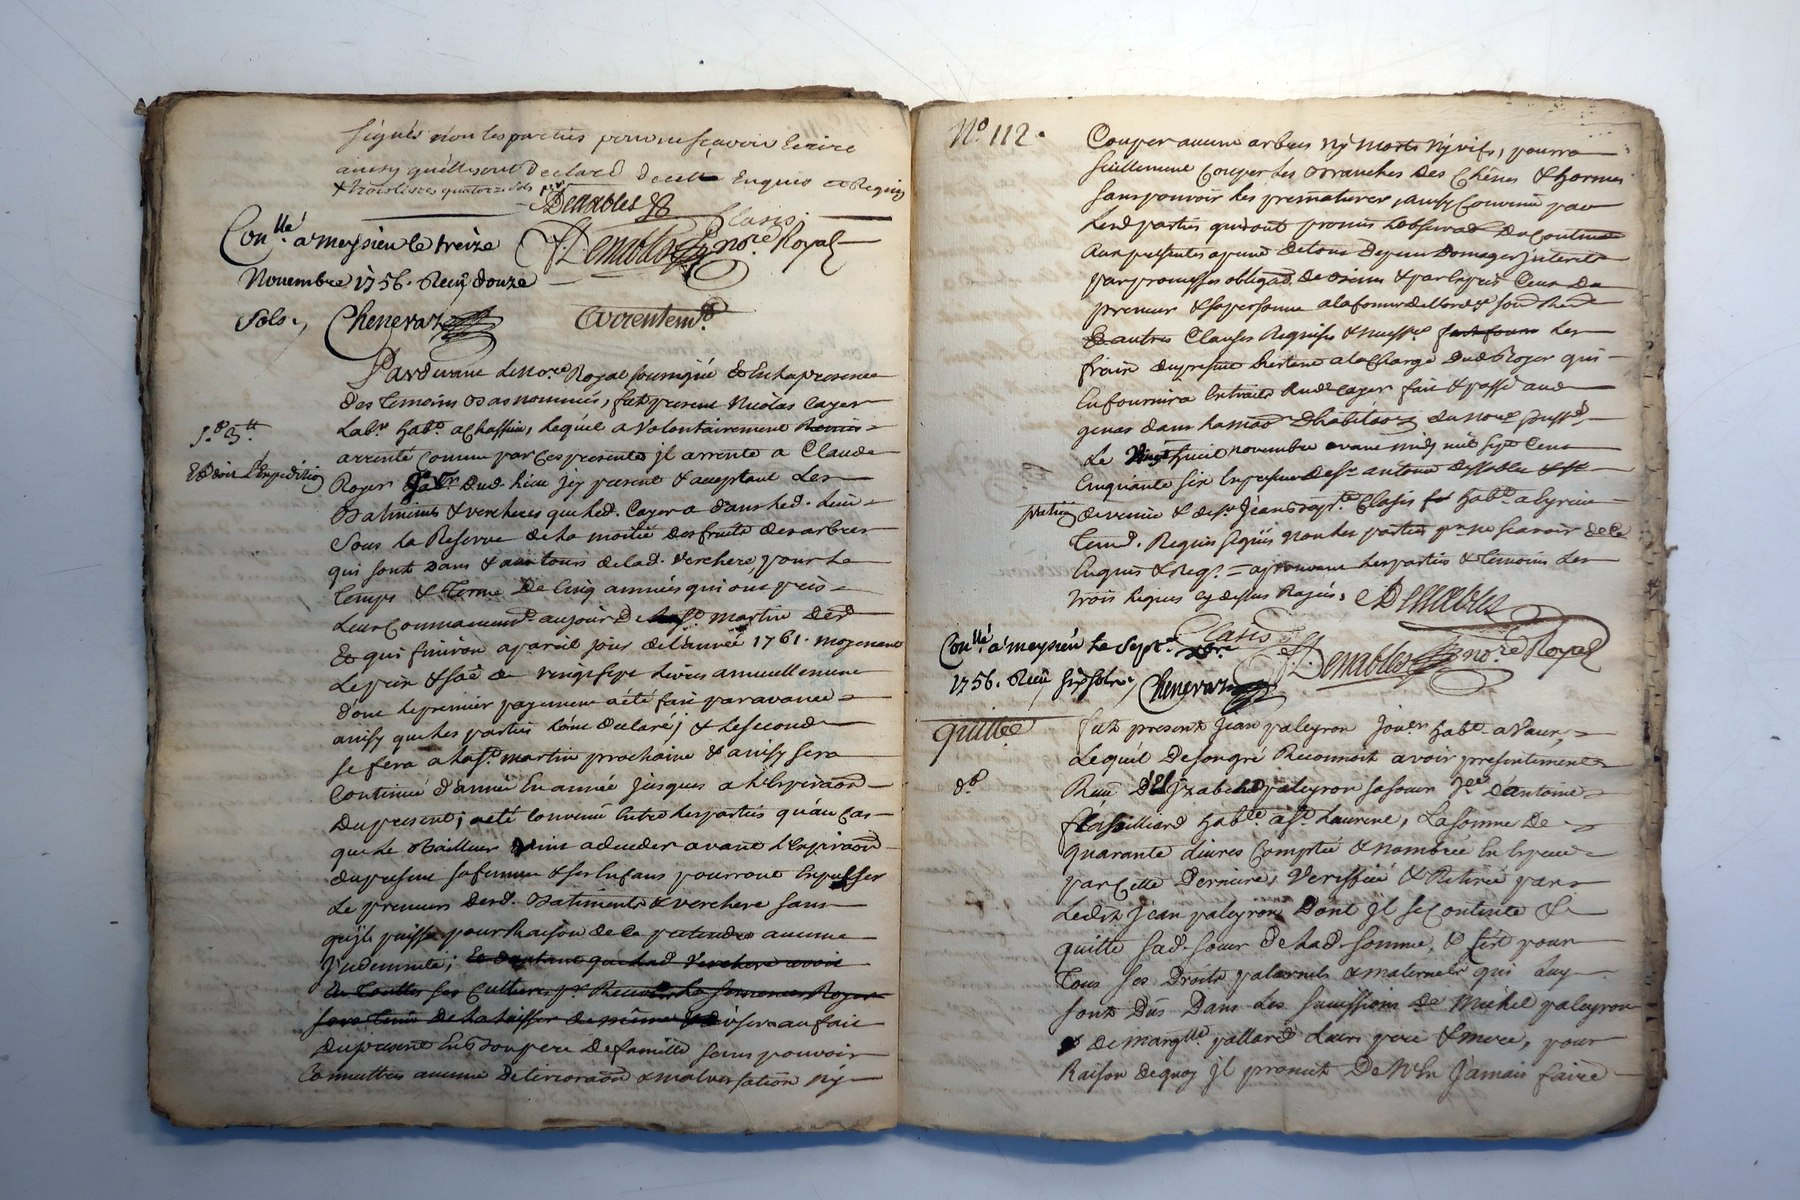 signés non les parties pour ne sçavoir Ecrire
ainsy quelles ont declaré de ce Enquis et Requis
trois livres quatorze sols
Denables
Clasis
Con.llé a meysieu le treize
Denables no.re Royal
Novembre 1756. Reçu douze
sols, Chenevaz
Arrentem.t
Pardevant Le No.re Royal soussigné Et En la presence
des temoins Bas nommés, fut present Nicolas Cayer
Lab.r hab.t a Chassieu, Lequel a volontairement Remis
arrenté comme par Ces presentes jl arrente a Claude
Et doit L'expedition
Roger Lab.r dud. Lieu jcy present & acceptant Les
Batiments & vercheres que led. Cayer a dans led. Lieu
sous la Reserve de La moitié des fruits des arbres
qui sont dans & au tours de lad. verchere, pour Le
temps & terme De Cinq années qui ont pris
Leur Commancem.t au jour De la s.t martin der
Et qui finiron a pareil jour de l'année 1761. moyenant
Le prix & de vingt sept Livres annuellement
dont le premier payement a été fait par avance
ainsy que les parties L'ont declaré; & Le second
se fera a La s.t martin prochaine & ainsy sera
Continué d'année En année jusques a L'Expiraon
Du present; a été convenu Entre Les parties qu'au Cas
que Le Bailleur vint a deceder avant L'Expiraon
du present sa femme & ses Enfans pourront Expulser
Le preneur desd. Batiments & verchere sans
qu'jl puisse pour Raison de Ce pretendre aucune
Indemnité; Et d'autant que lad. verchere avoit
Eu Touttes ses Cultures p.r Recevoir La semence Roger
sera tenu De La Laisser de même jl usera au fait
Du present En Bon pere De famille sans pouvoir
Commettre aucune Deterioraon & malversation Ny
N.o 112.
Couper aucun arbres Ny Morts Ny vifs, pourra
seullement Couper Les Branches des Chênes & hormes
sans pouvoir Les prematurer, ainsy Convenu par
Lesd. parties qui ont promis L'observaon Du Contenu
Aux presentes a peine De tous Depens Domages jnterets
par promesses obligaon. De Biens & par Exprés Ceux Du
preneur & sa personne a la forme de L'ord.e
& autres Clauses Requises & necess.es Les
frais du present Seront a la Charge Dud. Roger qui
En fournira Extrait Aud. Cayer fait & passé aud.
genas dans La maon D'habitaon du no.re
Le Vingt huit novembre avant midy mil sept Cent
Cinquante six En presence de s.r antoine
praticien de venu & de s.r Jean Bapt.e Clasis hab.t a
Tem. Requis signés non les parties p.r ne sçavoir de Ce
Enquis & Req.s = aprouvent Les parties & temoins Les
trois Lignes Cy dessus Rayées. Denables
Clasis
Con.llé a meysieu Le Sept x.bre
Denables no.re Royal
1756. Reçu six sols, Chenevaz
quitte
fut present Jean paleyron Jou.er hab.t a Vaux,
Lequel De son gré Reconnoit avoir presentement
d.o
Reçu D'Elizabeth paleyron sa sœur V.ve d'antoine
hab.te a s.t Laurent, La somme De
quarante Livres Comptée & nombrée En Especes
par Cette Derniere, Verifiée & Retirée par
Ledit Jean paleyron, Dont jl se Contente &
quitte sad. sœur De Lad. somme, & pour
Tous ses Droits paternels & maternels qui Luy
sont Dus Dans Les successions De Michel paleyron
& De marg.tte pallard Leurs pere & mere, pour
Raison de quoy jl promet De N'En jamais faire